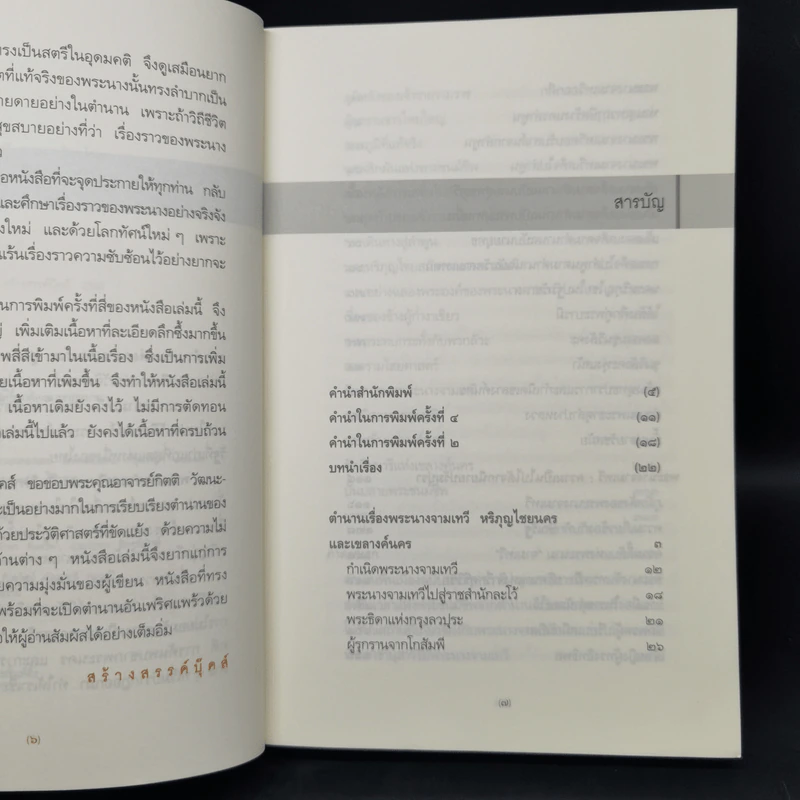 ทรงเป็นสตรีในอุดมคติ จึงดูเสมือนยาก
ที่แท้จริงของพระนางนั้นทรงลำบากเป็น
ดายอย่างในตำนาน เพราะถ้าวิถีชีวิต
สุขสบายอย่างที่ว่า เรื่องราวของพระนาง
หนังสือที่จะจุดประกายให้ทุกท่าน กลับ
และศึกษาเรื่องราวของพระนางอย่างจริงจัง
ใหม่ และด้วยโลกทัศน์ใหม่ ๆ เพราะ
เร้นเรื่องราวความซับซ้อนไว้อย่างยากจะ
ในการพิมพ์ครั้งที่สี่ของหนังสือเล่มนี้ จึง
เพิ่มเติมเนื้อหาที่ละเอียดลึกซึ้งมากขึ้น
สี่สีเข้ามาในเนื้อเรื่อง ซึ่งเป็นการเพิ่ม
เนื้อหาที่เพิ่มขึ้น จึงทำให้หนังสือเล่มนี้
เนื้อหาเดิมยังคงไว้ ไม่มีการตัดทอน
เล่มนี้ไปแล้ว ยังคงได้เนื้อหาที่ครบถ้วน
ขอขอบพระคุณอาจารย์กิตติ วัฒนะ-
เป็นอย่างมากในการเรียบเรียงตำนานของ
ด้วยประวัติศาสตร์ที่ขัดแย้ง ด้วยความไม่
ด้านต่าง ๆ หนังสือเล่มนี้จึงยากแก่การ
ความมุ่งมั่นของผู้เขียน หนังสือที่ทรง
พร้อมที่จะเปิดตำนานอันเพริศแพร้วด้วย
ให้ผู้อ่านสัมผัสได้อย่างเต็มอิ่ม
สร้างสรรค์บุ๊คส์
(๖)
สารบัญ
คำนำสำนักพิมพ์ (๕)
คำนำในการพิมพ์ครั้งที่ ๔ (๑๑)
คำนำในการพิมพ์ครั้งที่ ๒ (๑๘)
บทนำเรื่อง (๒๒)
ตำนานเรื่องพระนางจามเทวี หริภุญไชยนคร
และเขลางค์นคร ๓
กำเนิดพระนางจามเทวี ๑๒
พระนางจามเทวีไปสู่ราชสำนักละโว้ ๑๘
พระธิดาแห่งกรุงลวปุระ ๒๑
ผู้รุกรานจากโกสัมพี ๒๖
(๗)